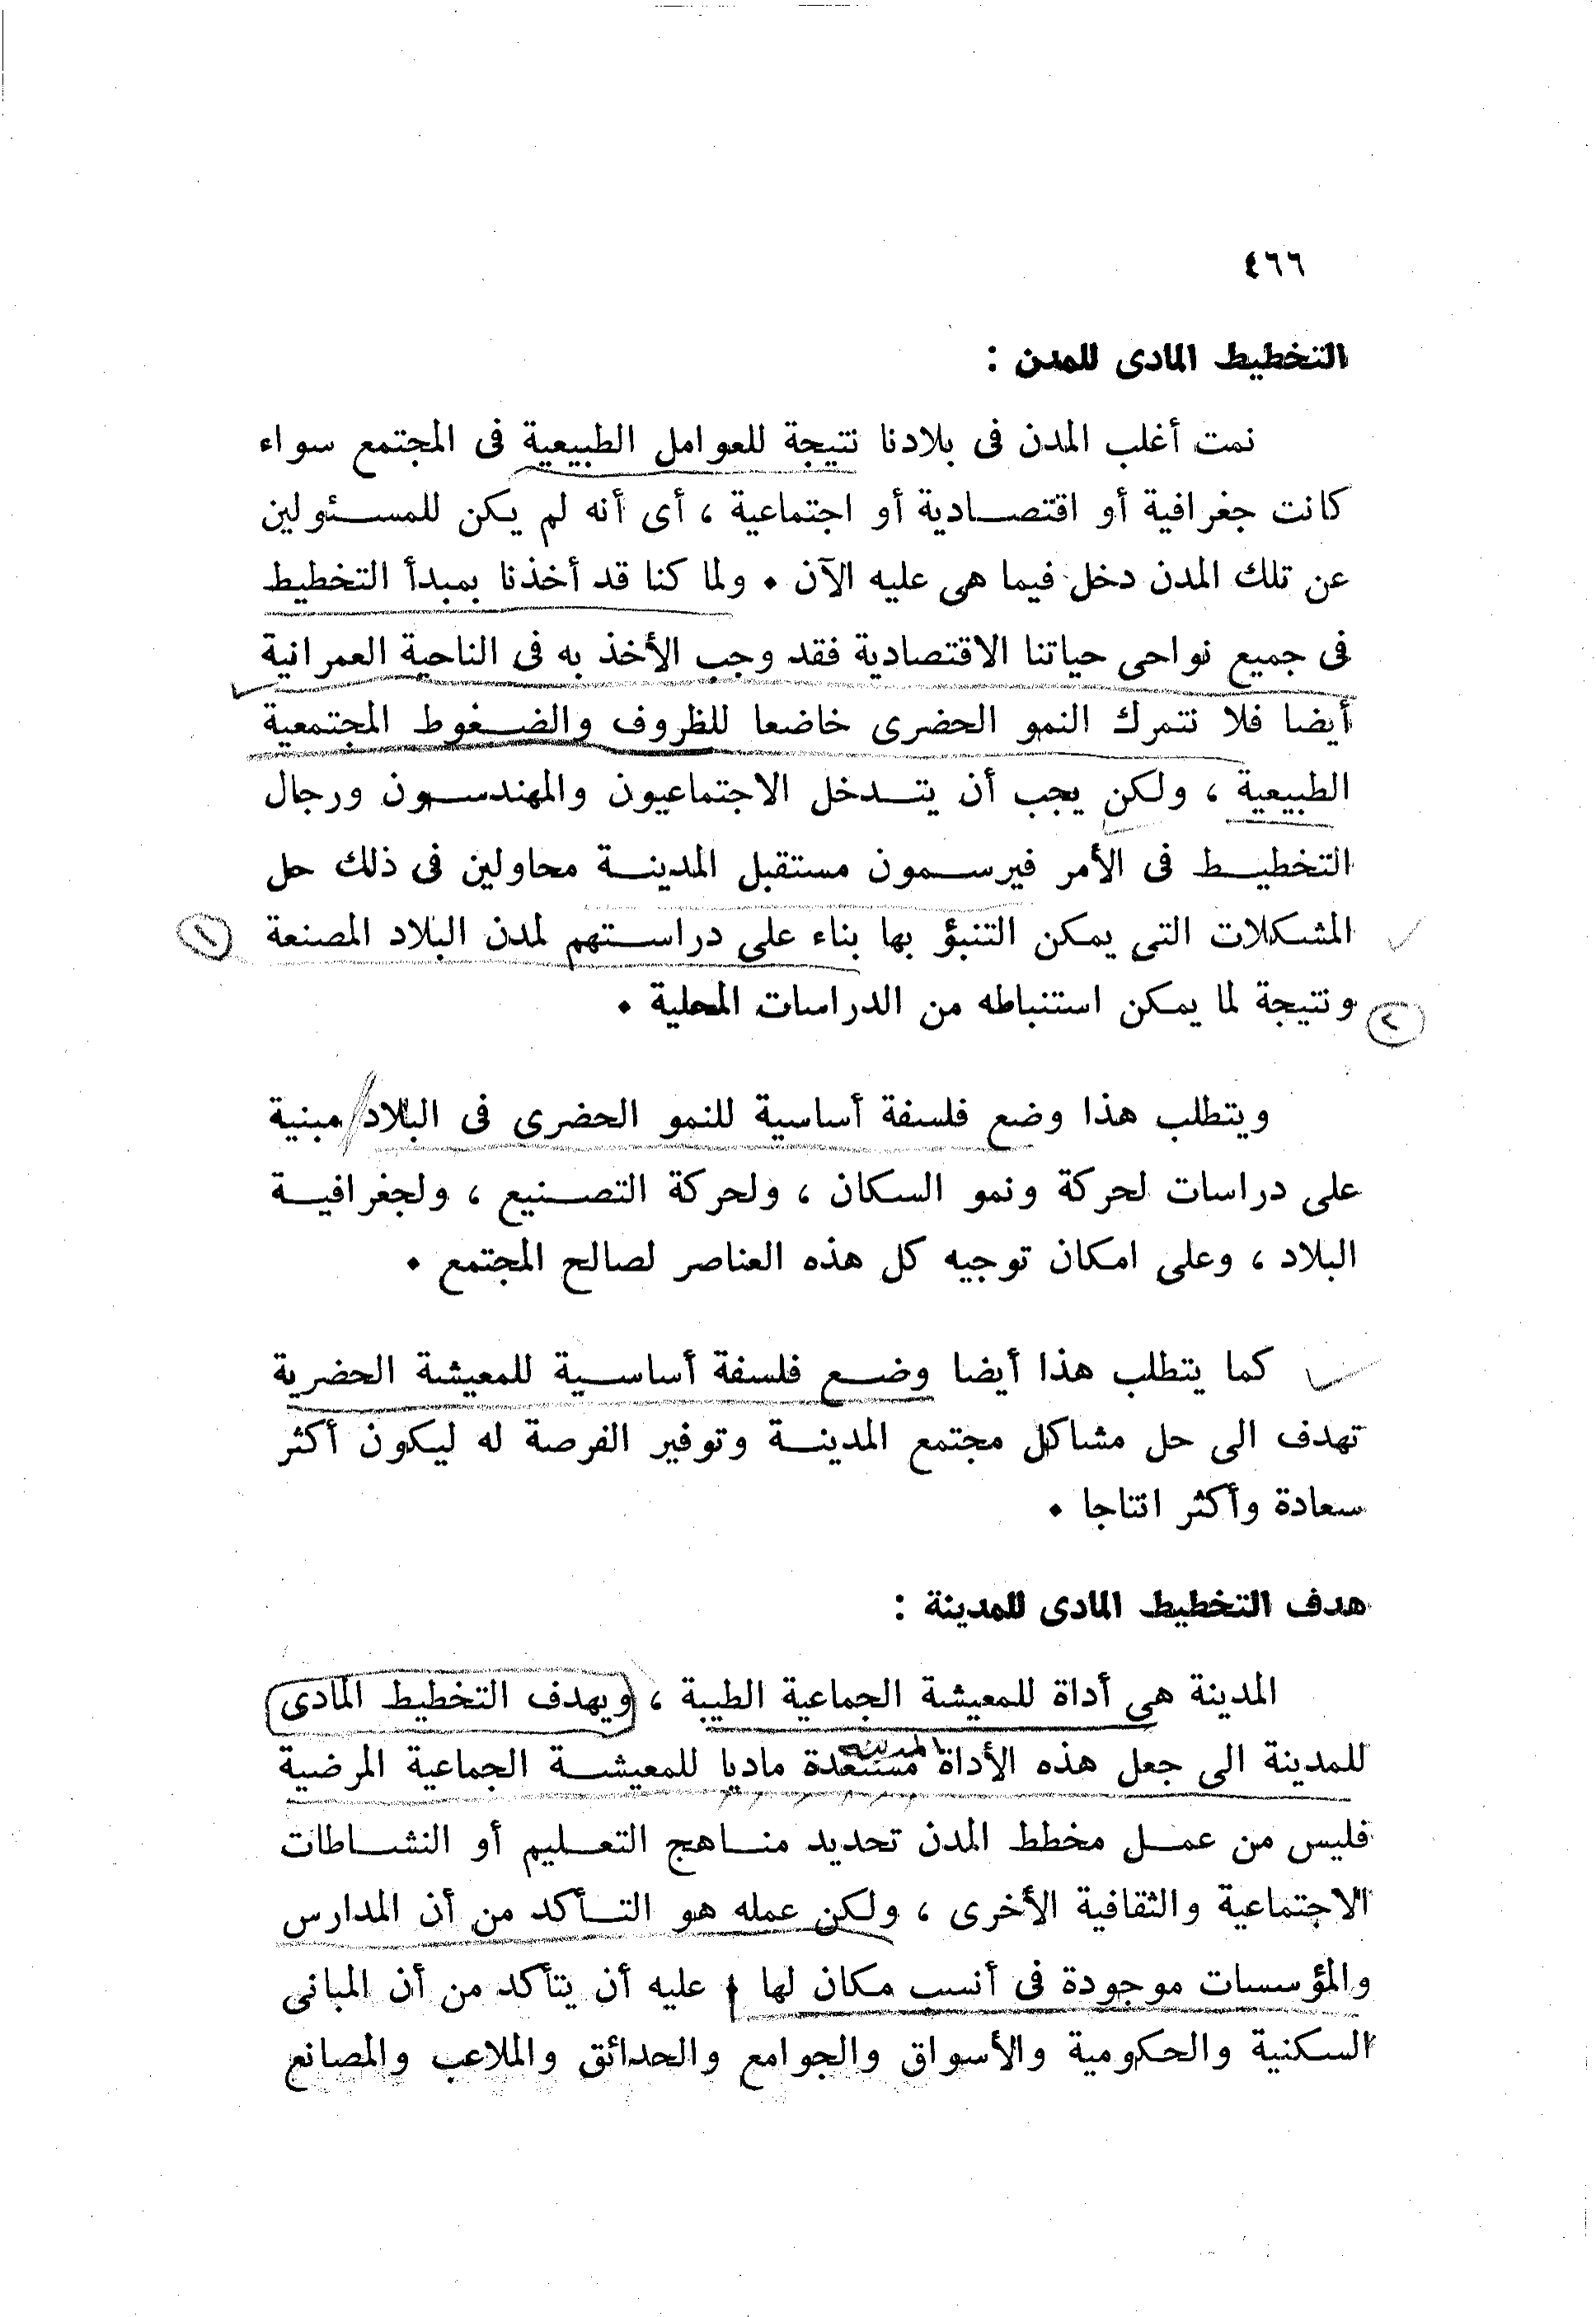 ٤٦٦
التخطيط المادى للمدن :
نمت أغلب المدن فى بلادنا نتيجة للعوامل الطبيعية فى المجتمع سواء
كانت جغرافية أو اقتصادية أو اجتماعية ، أى أنه لم يكن للمسئولين
عن تلك المدن دخل فيما هى عليه الآن . ولما كنا قد أخذنا بمبدأ التخطيط
فى جميع نواحى حياتنا الاقتصادية فقد وجب الأخذ به فى الناحية العمرانية
أيضا فلا نترك النمو الحضرى خاضعا للظروف والضغوط المجتمعية
الطبيعية ، ولكن يجب أن يتدخل الاجتماعيون والمهندسون ورجال
التخطيط فى الأمر فيرسمون مستقبل المدينة محاولين فى ذلك حل
المشكلات التى يمكن التنبؤ بها بناء على دراستهم لمدن البلاد المصنعة ١
٢ ونتيجة لما يمكن استنباطه من الدراسات المحلية .
ويتطلب هذا وضع فلسفة أساسية للنمو الحضرى فى البلاد مبنية
على دراسات لحركة ونمو السكان ، ولحركة التصنيع ، ولجغرافية
البلاد ، وعلى امكان توجيه كل هذه العناصر لصالح المجتمع .
كما يتطلب هذا أيضا وضع فلسفة أساسية للمعيشة الحضرية
تهدف الى حل مشاكل مجتمع المدينة وتوفير الفرصة له ليكون أكثر
سعادة وأكثر انتاجا .
هدف التخطيط المادى للمدينة :
المدينة هى أداة للمعيشة الجماعية الطيبة ، ويهدف التخطيط المادى
المدينة
للمدينة الى جعل هذه الأداة مستعدة ماديا للمعيشة الجماعية المرضية
فليس من عمل مخطط المدن تحديد مناهج التعليم أو النشاطات
الاجتماعية والثقافية الأخرى ، ولكن عمله هو التأكد من أن المدارس
والمؤسسات موجودة فى أنسب مكان لها ، عليه أن يتأكد من أن المبانى
السكنية والحكومية والأسواق والجوامع والحدائق والملاعب والمصانع